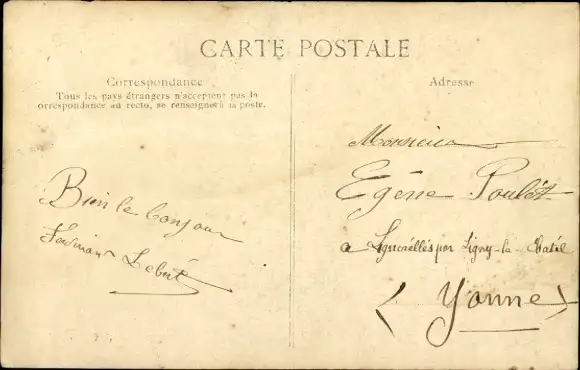 CARTE POSTALE
Correspondance
Tous les pays étrangers n'acceptent pas la
orrespondance au recto, se renseigner à la poste.
Adresse
Bien le bonjour
Lebut
Monsieur
Egène Poulèt
a Ligny-la-Chatél
(Yonne)